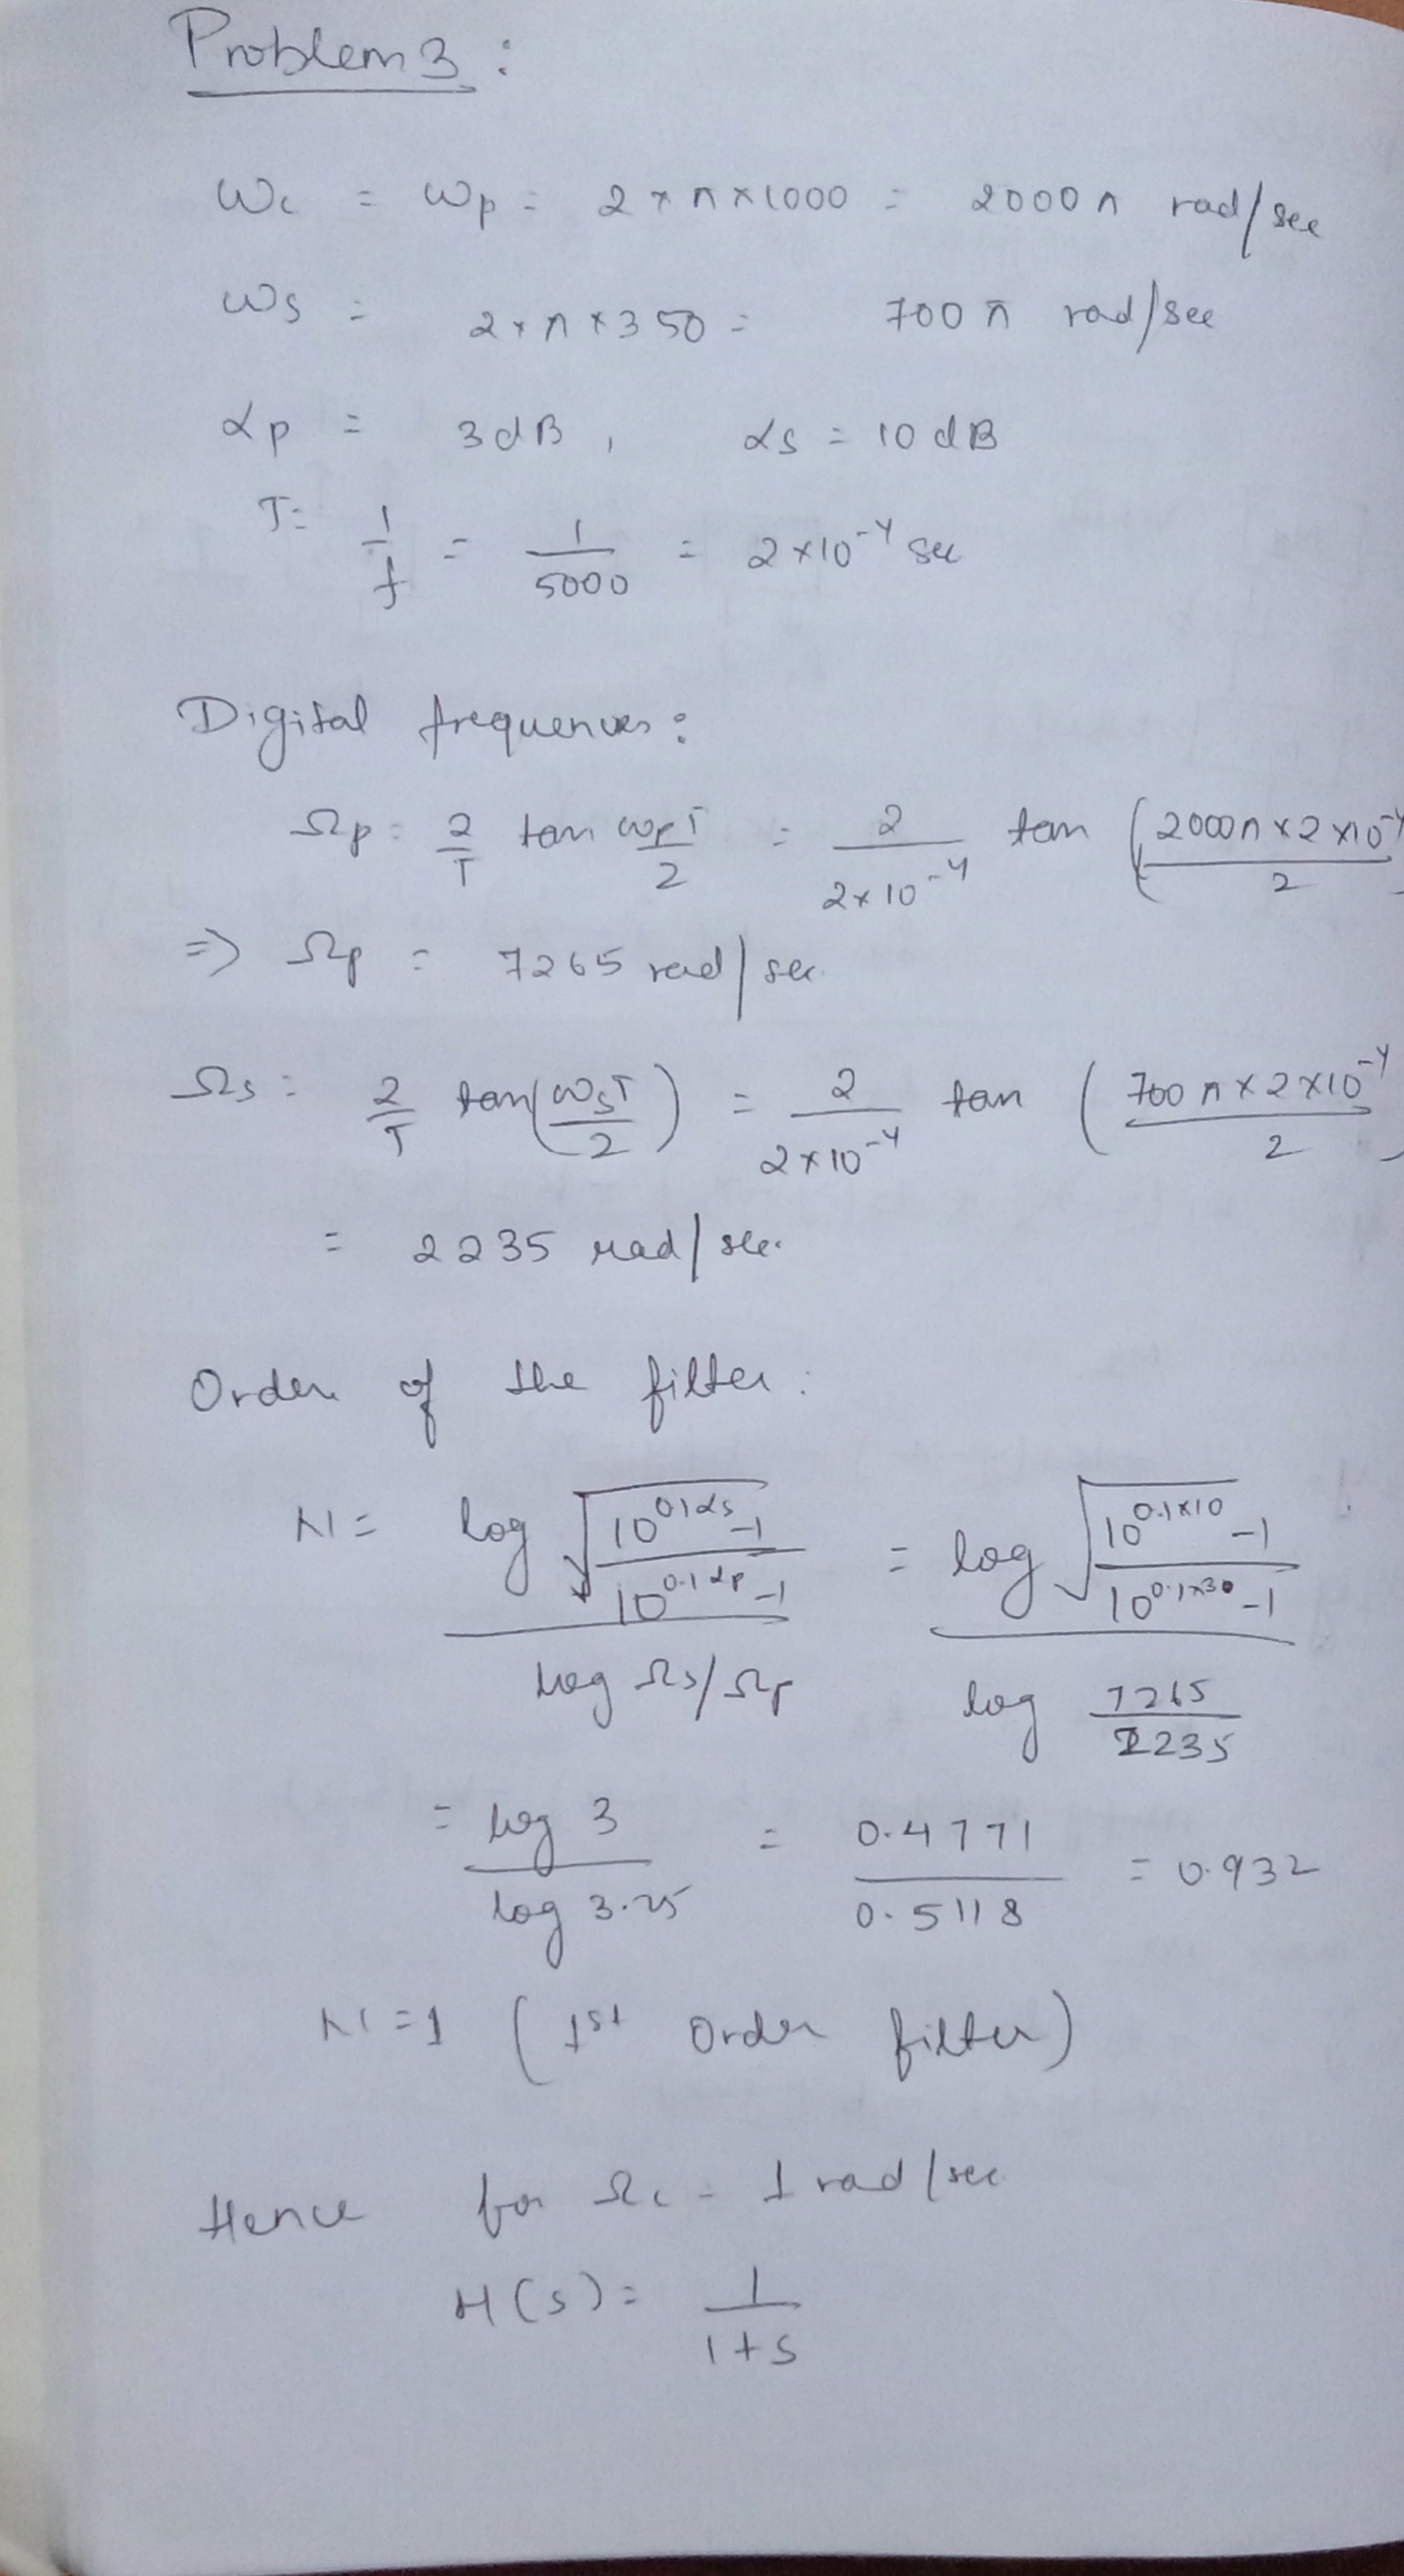 Problem 3 :
ωc = ωp = 2 × π × 1000 = 2000 π rad/sec
ωs = 2 × π × 350 = 700 π rad/sec
αp = 3 dB , αs = 10 dB
T = 1/f = 1/5000 = 2 × 10^-4 sec
Digital frequences :
Ωp = 2/T tan ωpT/2 = 2/(2×10^-4) tan (2000π × 2 × 10^-4 / 2
=> Ωp = 7265 rad/sec.
Ωs = 2/T tan(ωsT/2) = 2/(2×10^-4) tan (700 π × 2 × 10^-4 / 2)
= 2235 rad/sec.
Order of the filter :
N = log √((10^0.1αs -1)/(10^0.1αp -1)) / log Ωs/Ωp = log √((10^0.1×10 -1)/(10^0.1×30 -1)) / log 7265/2235
= log 3 / log 3.25 = 0.4771/0.5118 = 0.932
N = 1 (1st Order filter)
Hence for Ωc = 1 rad/sec
H(s) = 1/(1+s)